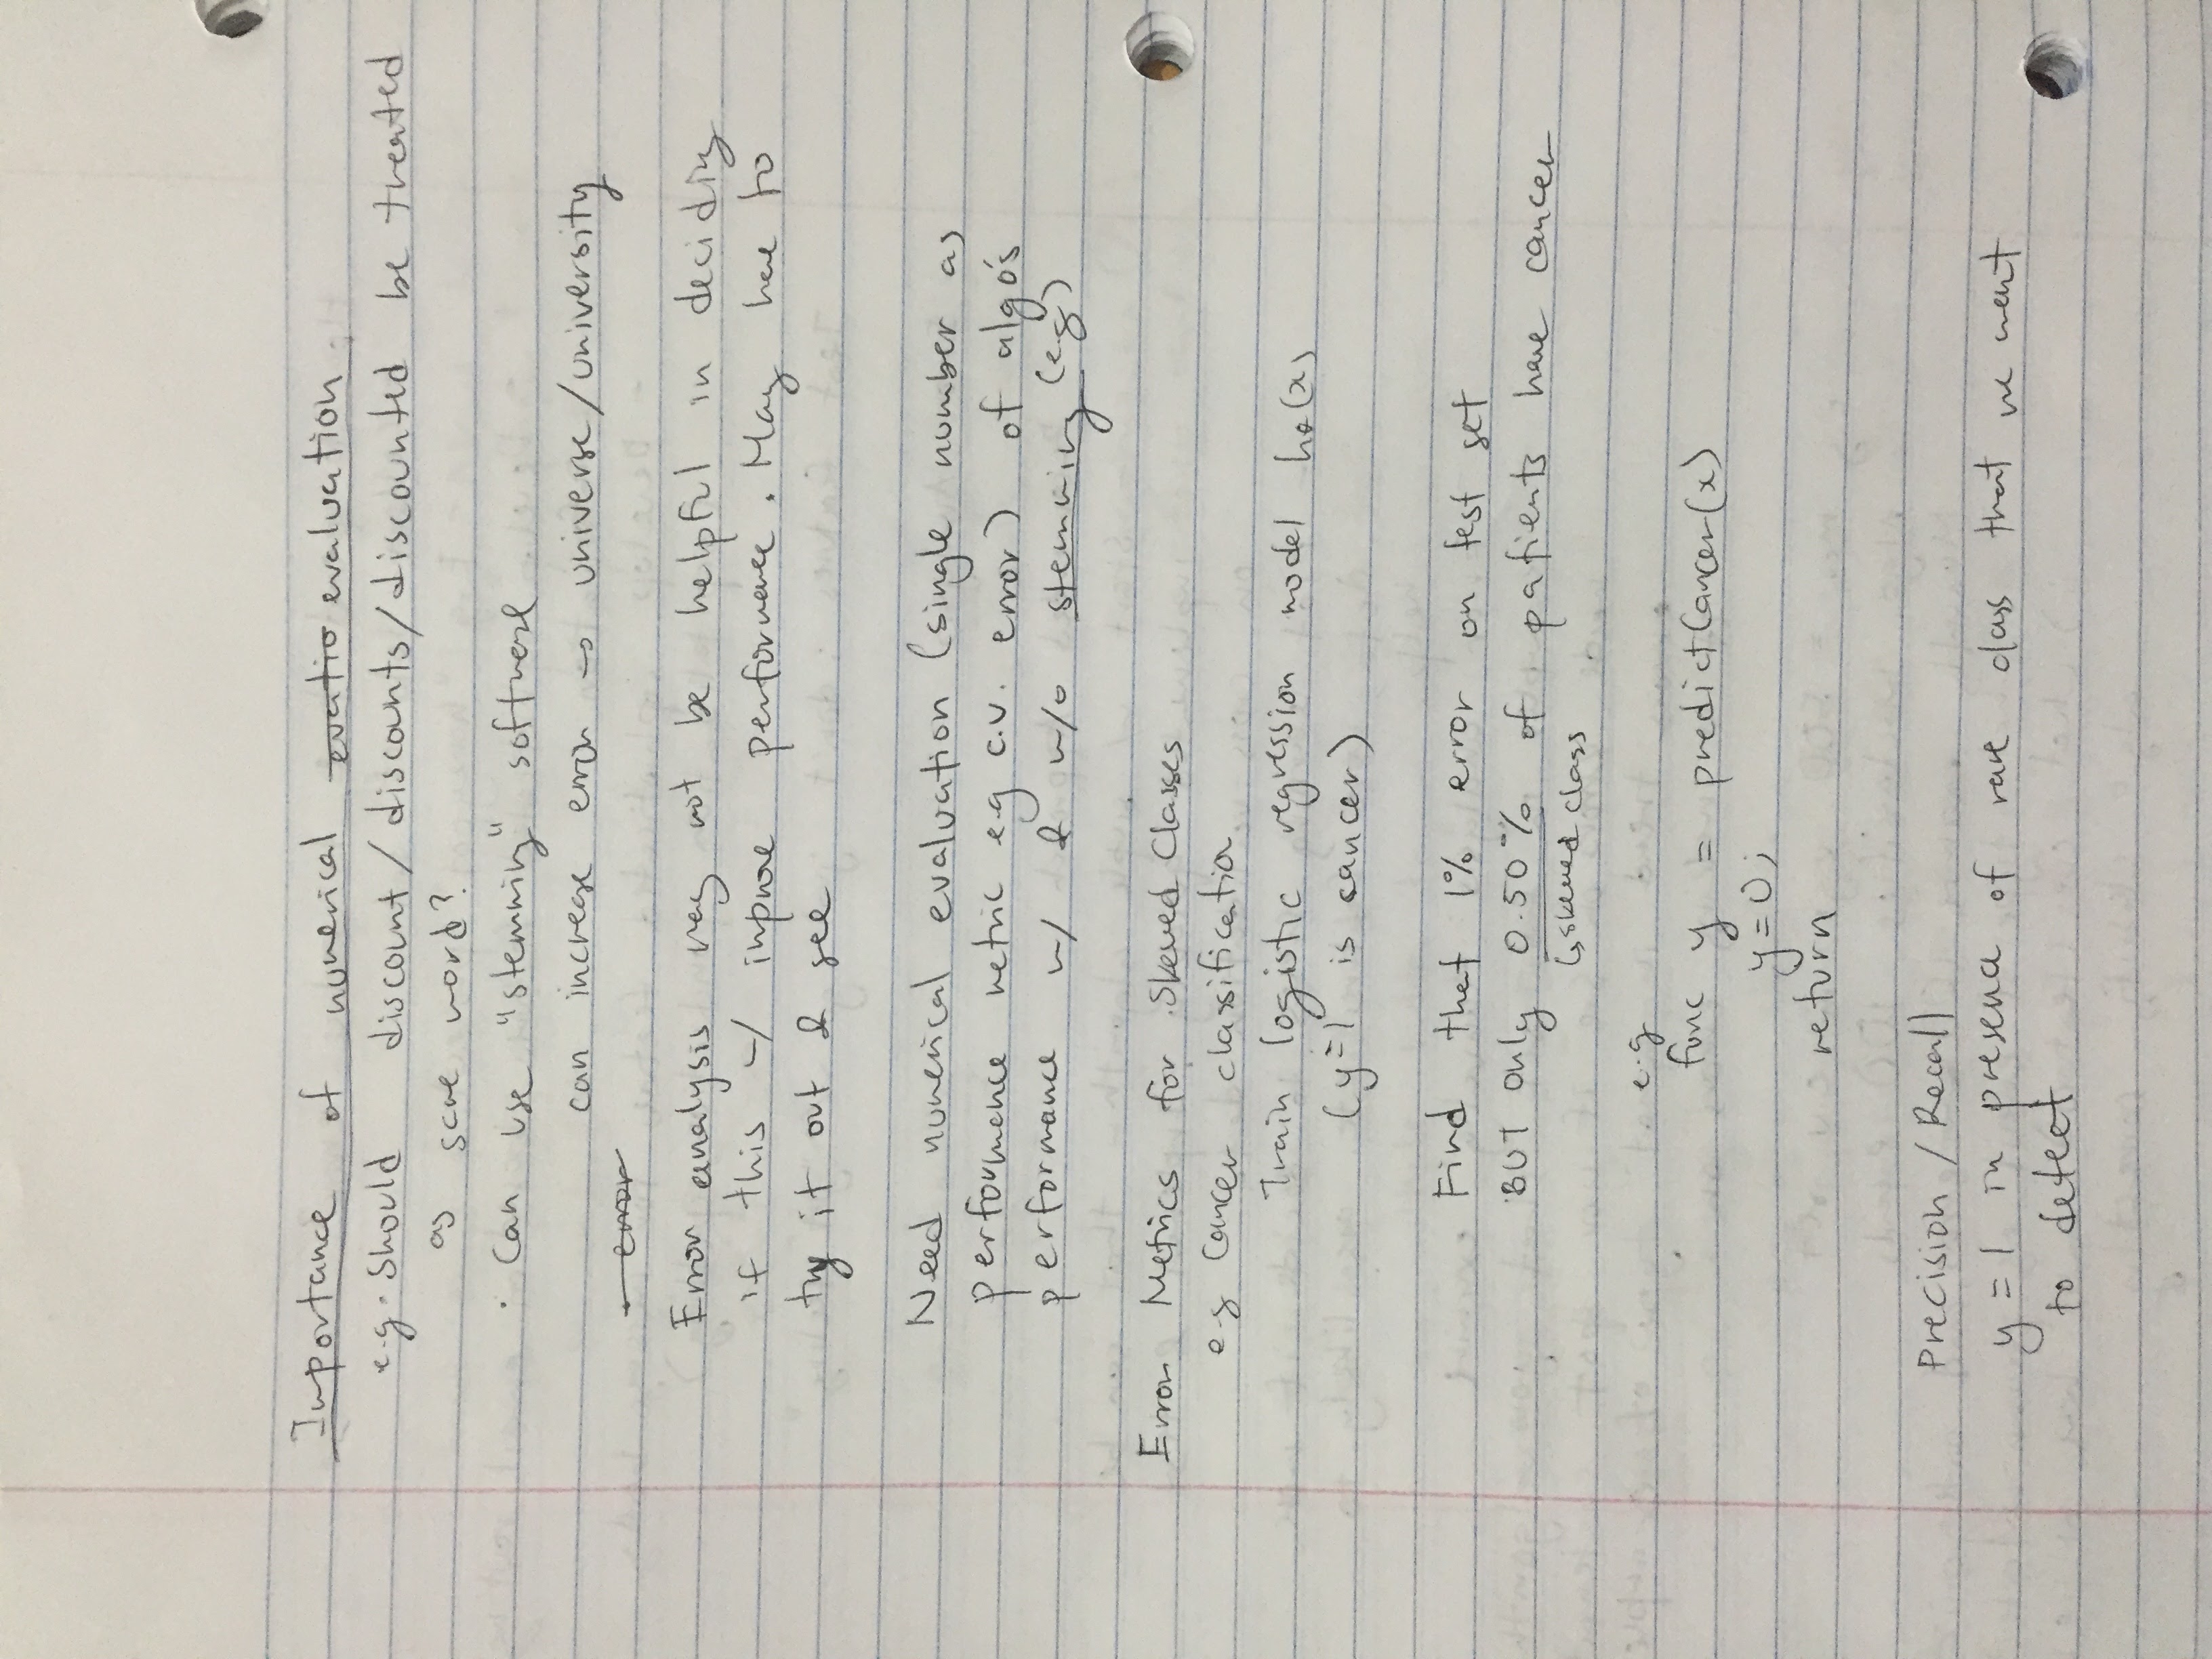 Importance of numerical evatio evaluation
e.g. Should discount/discounts/discounted be treated
as same word?
· Can use "stemming" software
can increase error → universe/university
- error
Error analysis may not be helpful in deciding
if this w/ improve performance. May have to
try it out & see
Need numerical evaluation (single number as
performance metric e.g c.v. error) of algo's
performance w/ & w/o stemming (e.g)
Error Metrics for Skewed Classes
e.g Cancer classification
Train logistic regression model hθ(x)
(y=1 is cancer)
Find that 1% error on test set
BUT only 0.50% of patients have cancer
↳ skewed class
e.g
func y = predictCancer(x)
y=0;
return
Precision / Recall
y=1 in presence of rare class that we want
to detect